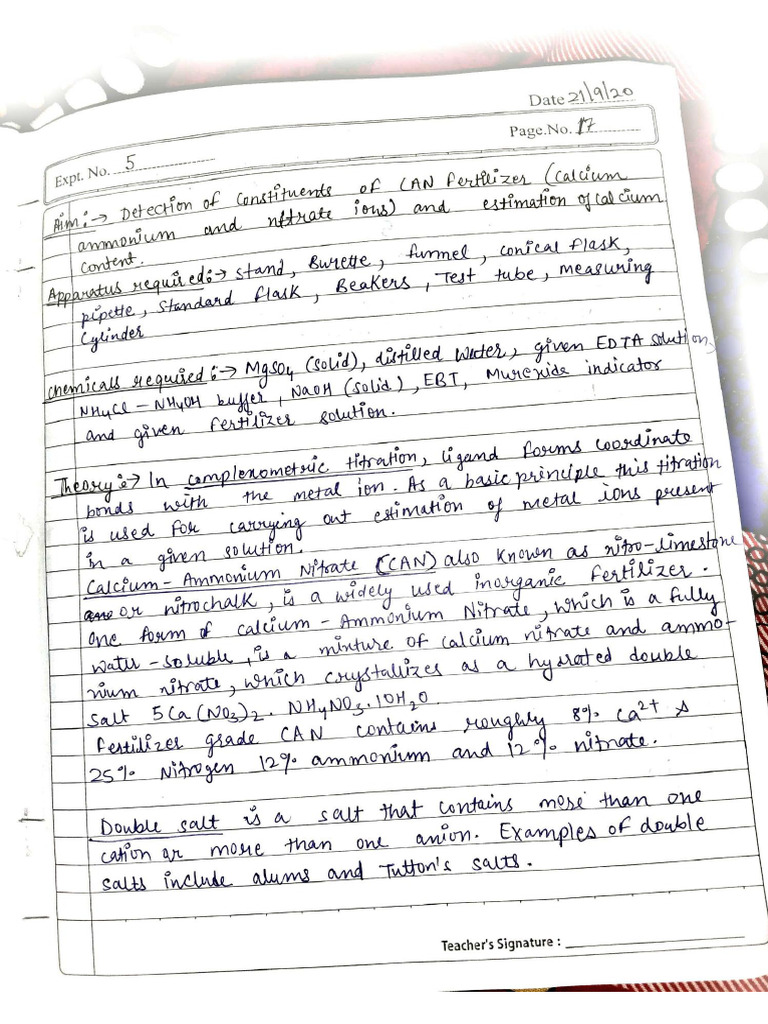 Date 21/9/20
Expt. No. 5
Page.No. 17
Aim:→ Detection of Constituents of CAN Fertilizer (Calcium
ammonium and nitrate ions) and estimation of calcium
content.
Apparatus required:→ stand, Burette, funnel, conical flask,
pipette, standard flask, Beakers, Test tube, measuring
Cylinder
Chemicals required:→ MgSO4 (solid), distilled water, given EDTA solution,
NH4Cl - NH4OH buffer, NaOH (solid), EBT, Murexide indicator
and given Fertilizer solution.
Theory:→ In complexometric titration, ligand forms coordinate
bonds with the metal ion. As a basic principle this titration
is used for carrying out estimation of metal ions present
in a given solution.
Calcium-Ammonium Nitrate (CAN) also known as nitro-limestone
or nitrochalk, is a widely used inorganic fertilizer.
One form of calcium-Ammonium Nitrate, which is a fully
water-soluble, is a mixture of calcium nitrate and ammo-
nium nitrate, which crystallizes as a hydrated double
salt 5Ca(NO3)2. NH4NO3. 10H2O.
Fertilizer grade CAN contains roughly 8% Ca2+ &
25% Nitrogen 12% ammonium and 12% nitrate.
Double salt is a salt that contains more than one
cation or more than one anion. Examples of double
salts include alums and Tutton's salts.
Teacher's Signature :